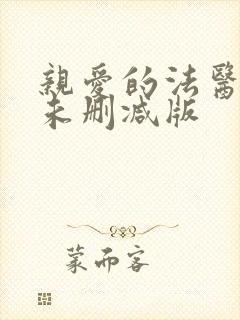 親愛的法醫
未刪減版
蒙而客